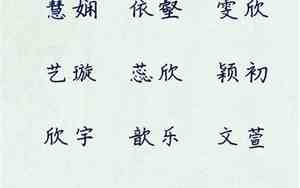 慧娴 依壑 雯欣
艺璇 蕊欣 颖初
欣宇 歆乐 文萱